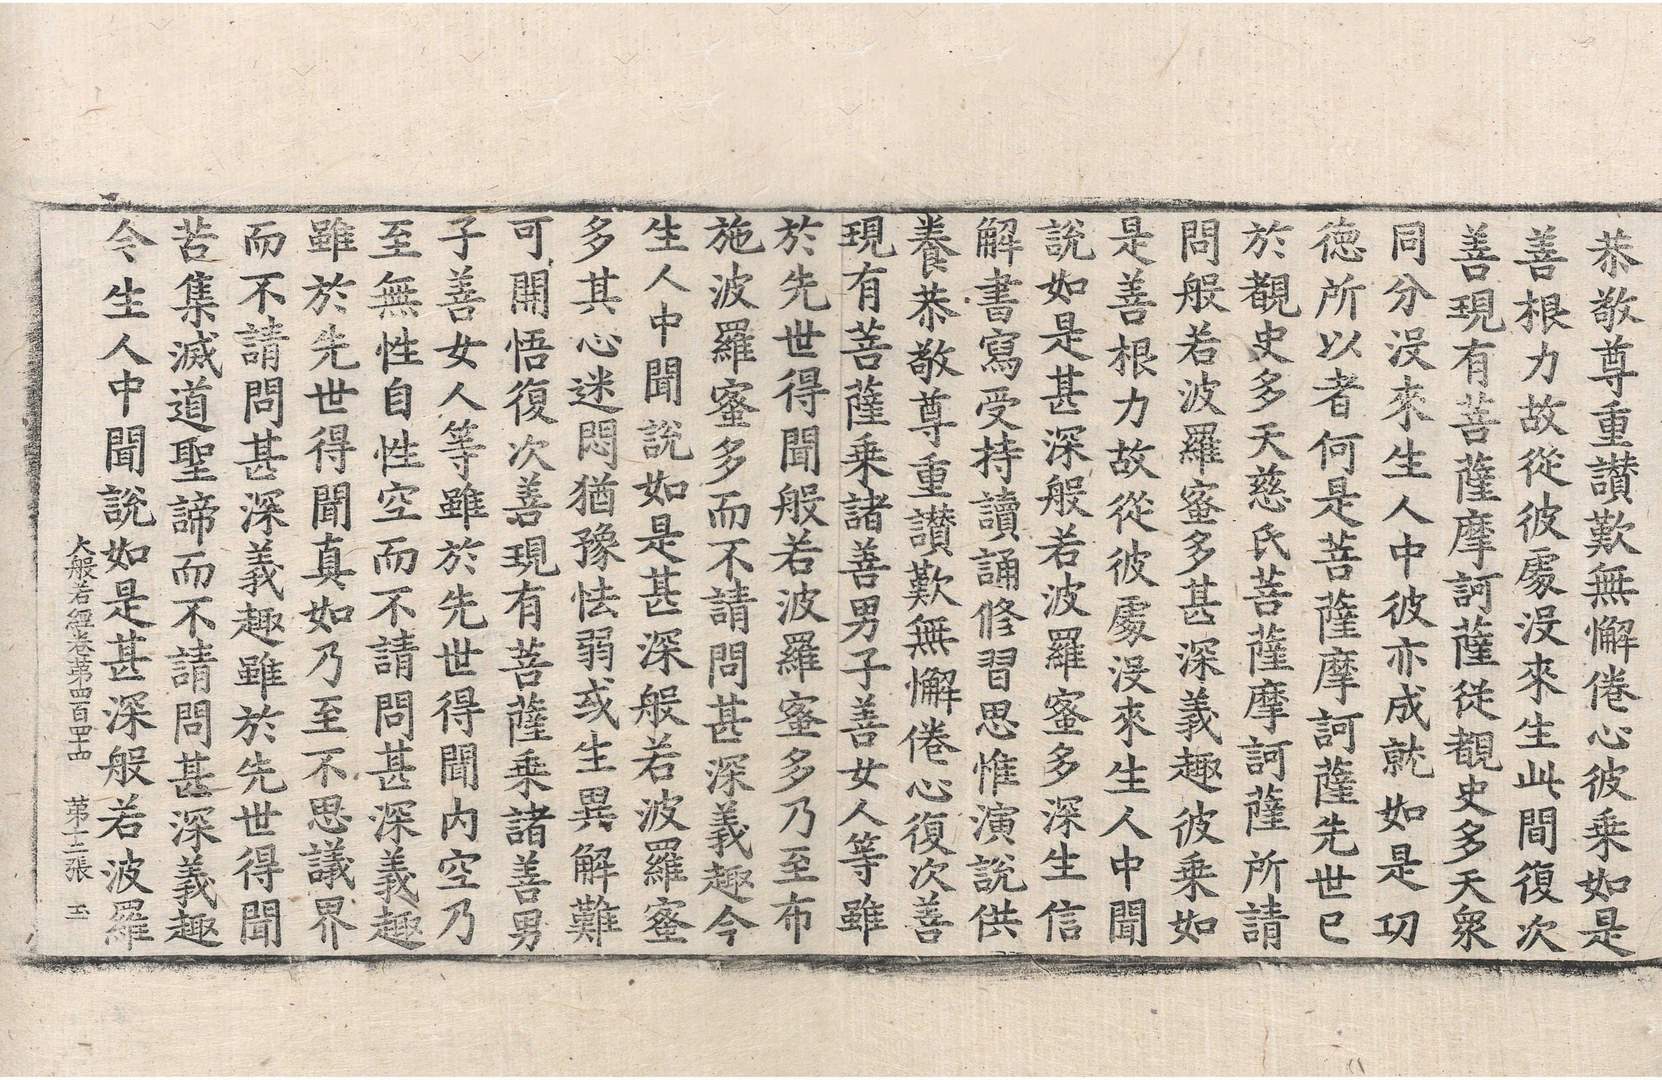 恭敬尊重讃歎無懈倦心彼乗如是
善根力故從彼處没來生此間復次
善現有菩薩摩訶薩從覩史多天衆
同分没來生人中彼亦成就如是㓛
徳所以者何是菩薩摩訶薩先世已
於覩史多天慈氏菩薩摩訶薩所請
問般若波羅蜜多甚深義趣彼乗如
是善根力故從彼處没來生人中聞
說如是甚深般若波羅蜜多深生信
解書寫受持讀誦修習思惟演說供
養恭敬尊重讃歎無懈倦心復次善
現有菩薩乗諸善男子善女人等雖
於先世得聞般若波羅蜜多乃至布
施波羅蜜多而不請問甚深義趣今
生人中聞說如是甚深般若波羅蜜
多其心迷悶猶豫怯弱或生異解難
可開悟復次善現有菩薩乗諸善男
子善女人等雖於先世得聞内空乃
至無性自性空而不請問甚深義趣
雖於先世得聞真如乃至不思議界
而不請問甚深義趣雖於先世得聞
苦集滅道聖諦而不請問甚深義趣
今生人中聞說如是甚深般若波羅
大般若經卷第四百四十四 第十二張 玉